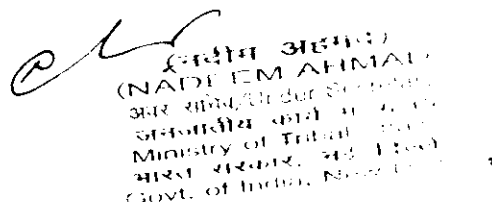 (नदीम अहमद)
(NADEEM AHMAD)
अवर सचिव/Under Secretary
जनजातीय कार्य
Ministry of Tribal
भारत सरकार, नई दिल्ली
Govt. of India, New